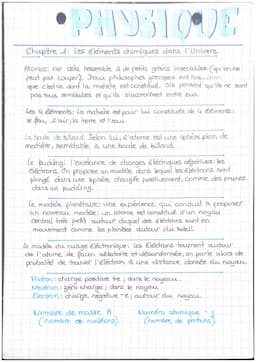 PHYSIQUE
Chapitre 1: Les éléments chimiques dans l'Univers
Atomos: car cela ressemble à de petits grains insécables (qu'on ne
peut pas couper). Deux philosophes grecques ont
que c'est ce dont la matière est constitué. Ils pensent qu'ils ne sont
pas tous semblables et qu'ils s'accrochent entre eux.
Les 4 éléments: La matière est pour lui constituée de 4 éléments:
le feu, l'air, la terre et l'eau.
La boule de billard: Selon lui, l'atome est une sphère plein de
matière, semblable à une boule de billard.
Le pudding: l'existence de charges éléctriques négatives: les
électrons. On propose un modèle dans lequel les électrons sont
plongé dans une sphère chargée positivement, comme des prunes
dans un pudding.
Le modèle planétaire: une expérience, qui conduit à proposer
un nouveau modèle: un atome est constitué d'un noyau
central très petit autour duquel des électrons sont en
mouvement comme les planètes autour du soleil.
Le modèle du nuage électronique: les électrons tournent autour
de l'atome de façon aléatoire et désordonnée, on parle alors de
probalité de trouver l'électron à une distance donnée du noyau.
Proton: charge positive +e; dans le noyau.
Neutron: zéro charge; dans le noyau
Électron: charge négative -e; autour du noyau.
Nombre de masse A Numéro atomique: Z
(nombre de nucléons). (nombre de protons).